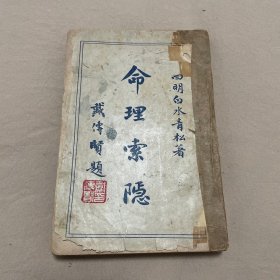 四明白水青松著
命理索隱
戴傳賢題